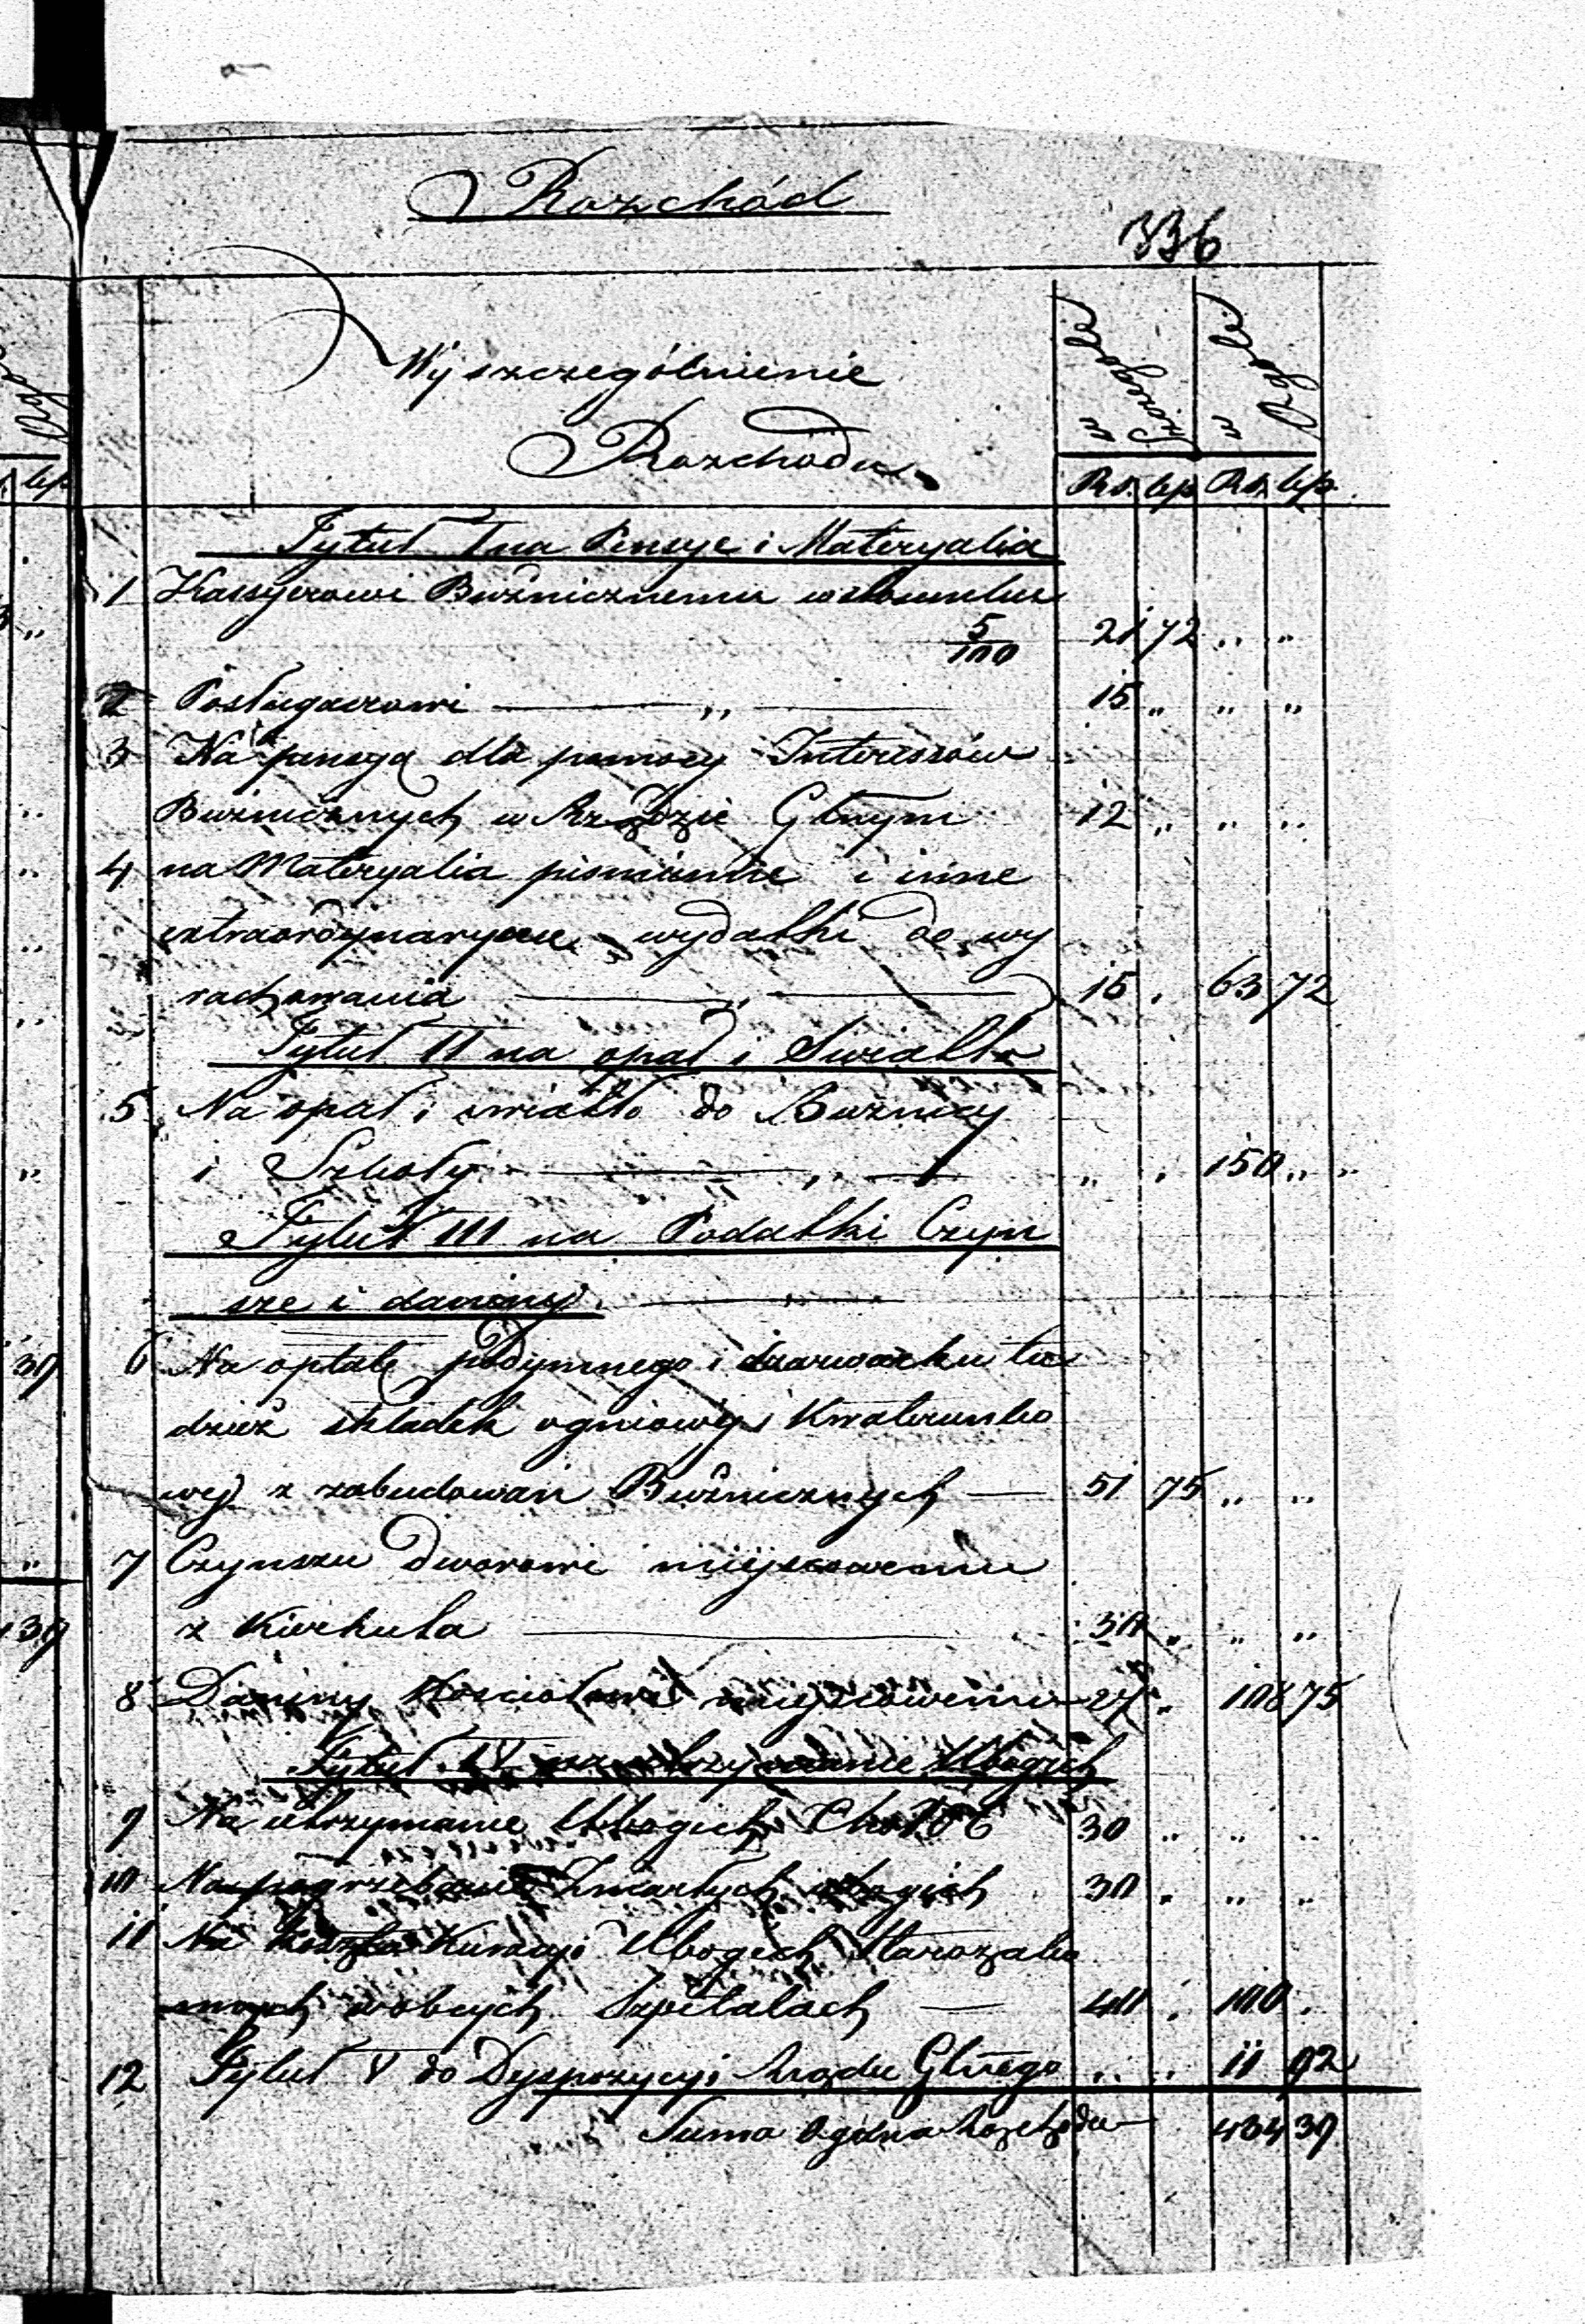 Rozchód
336
Wyszczególnienie
Rozchodu
w Szczególe w Ogóle
Rs. kp. Rs. kp.
Tytuł I na Pensye i Materyalia
1 Kassyerowi Bużnicznemu w stosunku
5/100 21 72 " "
2 Posługaczowi — " — 15 " " "
3 Na pensyą dla pomocy Interessów
Bużnicznych w Rządzie Głnym 12 " " "
4 na Materyalia piśmienne i inne
extraordynaryjne wydatki do wy
rachowania — " — 15 . 63 72
Tytuł II na opał i Swiatło
5 Na opał i swiatło do Bużnicy
i Szkoły — " — " . 150 "
Tytuł III na Podatki Czyn
sze i daniny
6 Na opłatę podymnego i szarwarku tu
dzież składek ogniowej i Kwaterunko
wej z zabudowań Bużnicznych — 51 75 " "
7 Czynszu Dworowi miejscowemu
z Kierkuta — 30 " " "
8 Daniny Kościołowi miejscowemu 27 " 108 75
Tytuł IV na utrzymanie Ubogich
9 Na utrzymanie Ubogich 30 " " "
10 Na pogrzebanie Zmarłych ubogich 30 . " "
11 Na Koszta Kuracyi Ubogich Starozako
nnych w obcych Szpitalach — 40 . 100 .
12 Tytuł V do Dyspozycyi Rządu Głnego " " 11 92
Suma Ogólna Rozchodu — 434 39